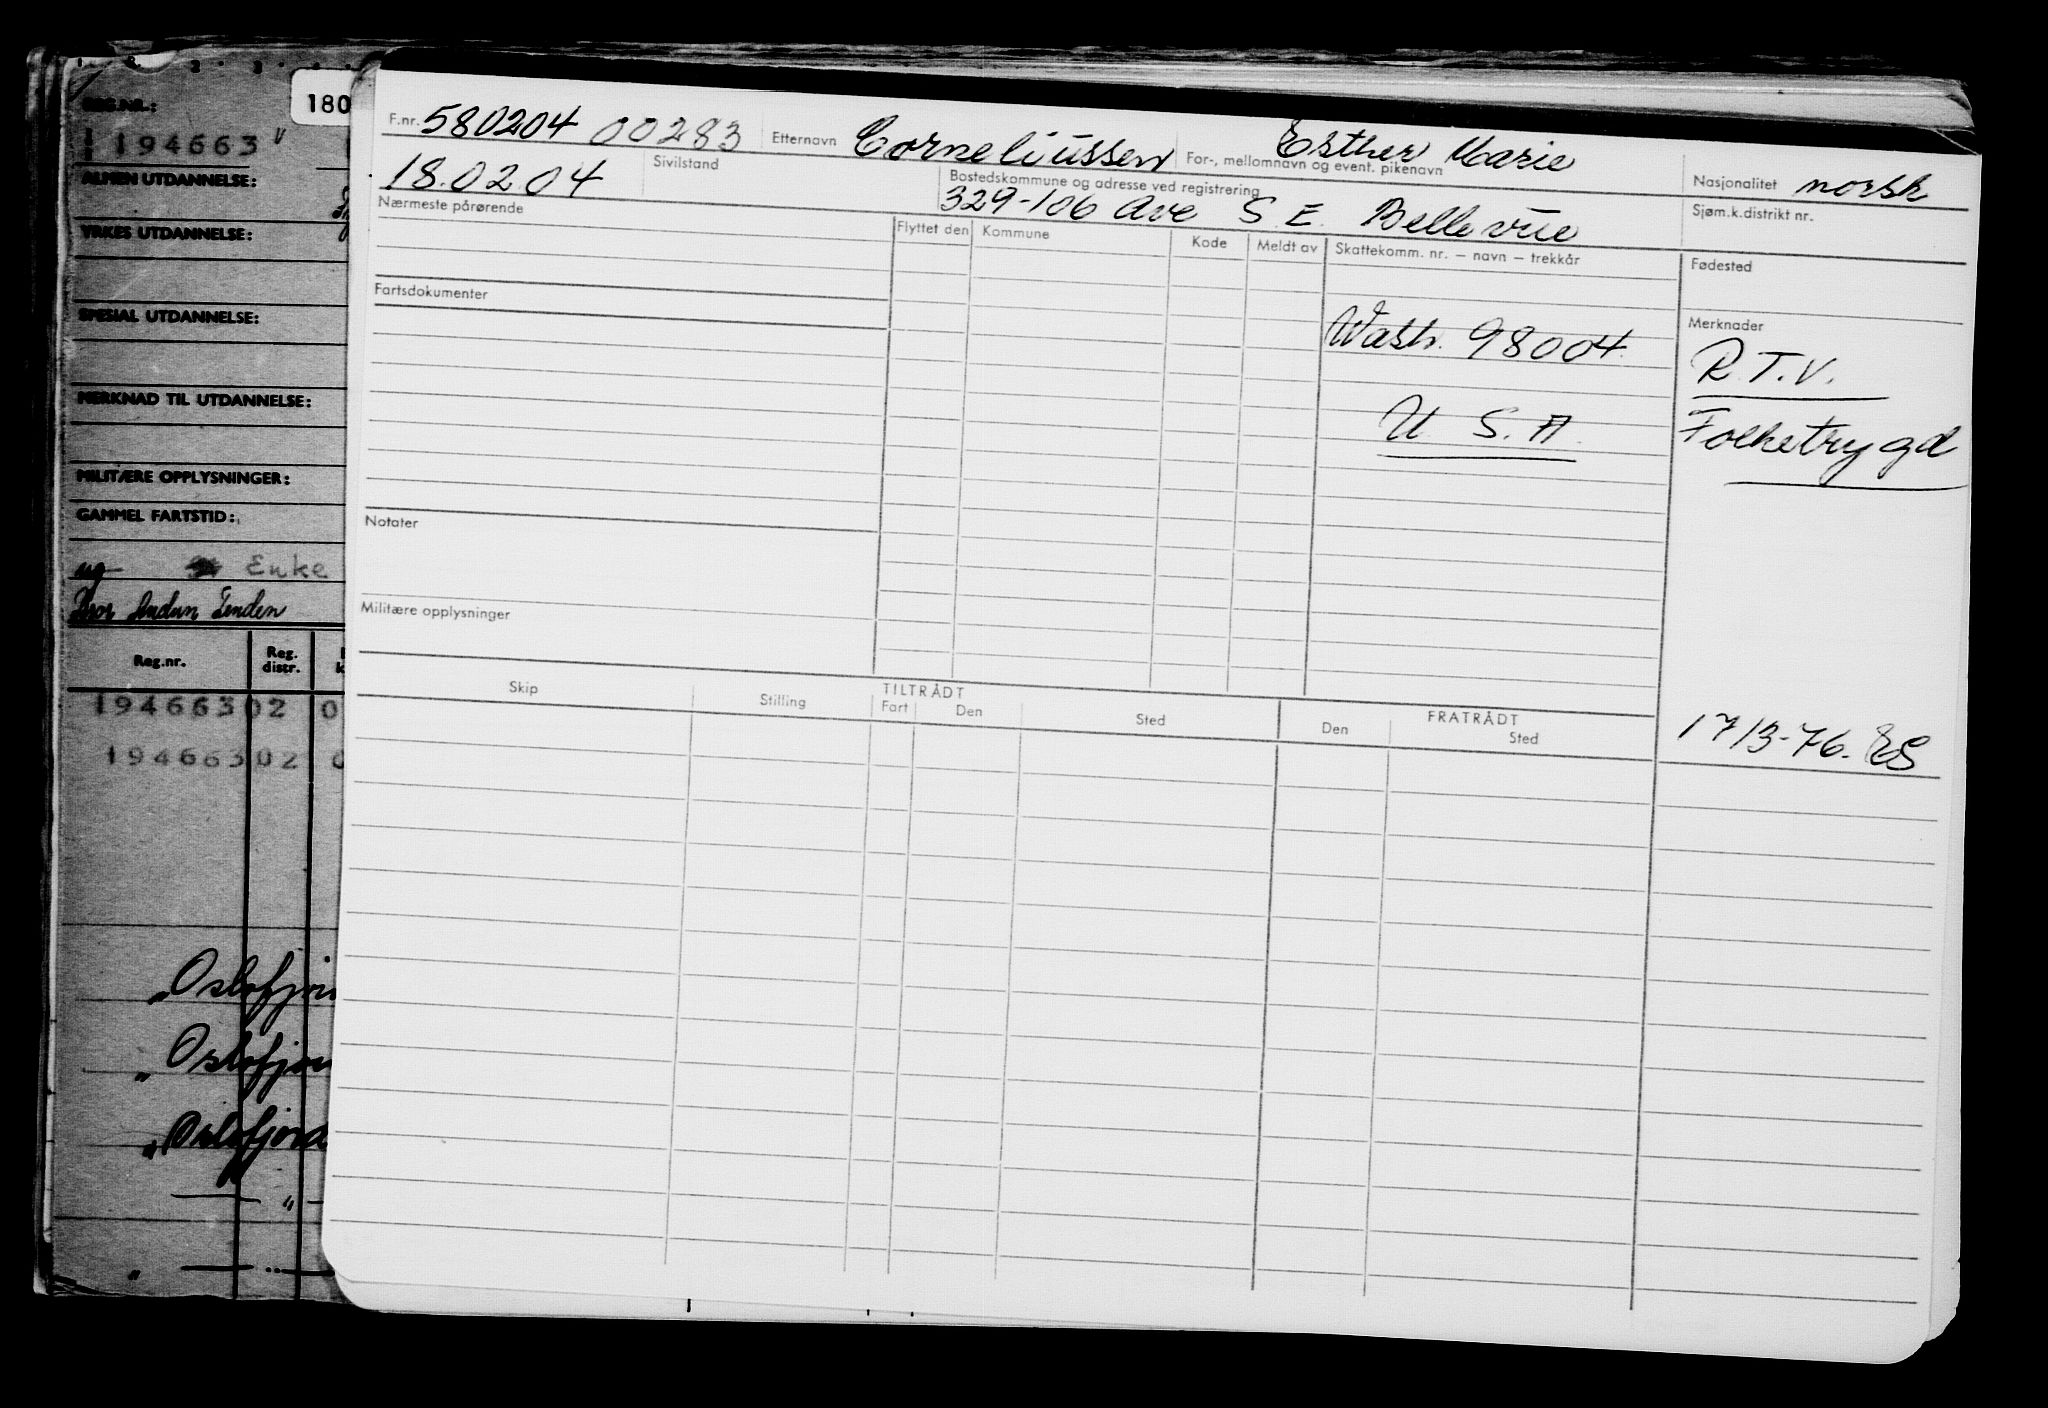 REG.NR.:
194663 v
ALMEN UTDANNELSE:
YRKES UTDANNELSE:
SPESIAL UTDANNELSE:
MERKNAD TIL UTDANNELSE:
MILITÆRE OPPLYSNINGER:
GAMMEL FARTSTID:
ug Enke
Reg.nr. Reg. distr.
194663 02 0
194663 02 0
„Oslofjor
„Oslofjor
„Oslofjord
— „ —
„ — „ —
180
F.nr. 580204 00283 Etternavn Corneliussen For-, mellomnavn og event. pikenavn Esther Marie Nasjonalitet norsk
18.02.04 Sivilstand Bostedskommune og adresse ved registrering 329-106 Ave S.E. Bellevue Sjøm.k.distrikt nr.
Nærmeste pårørende Flyttet den Kommune Kode Meldt av Skattekomm. nr. – navn – trekkår Fødested
Fartsdokumenter
Merknader
Wash. 98004. R.T.V.
U. S. A. Folketrygd
Notater
Militære opplysninger
Skip Stilling TILTRÅDT Fart Den Sted FRATRÅDT Den Sted
17/3-76. ES